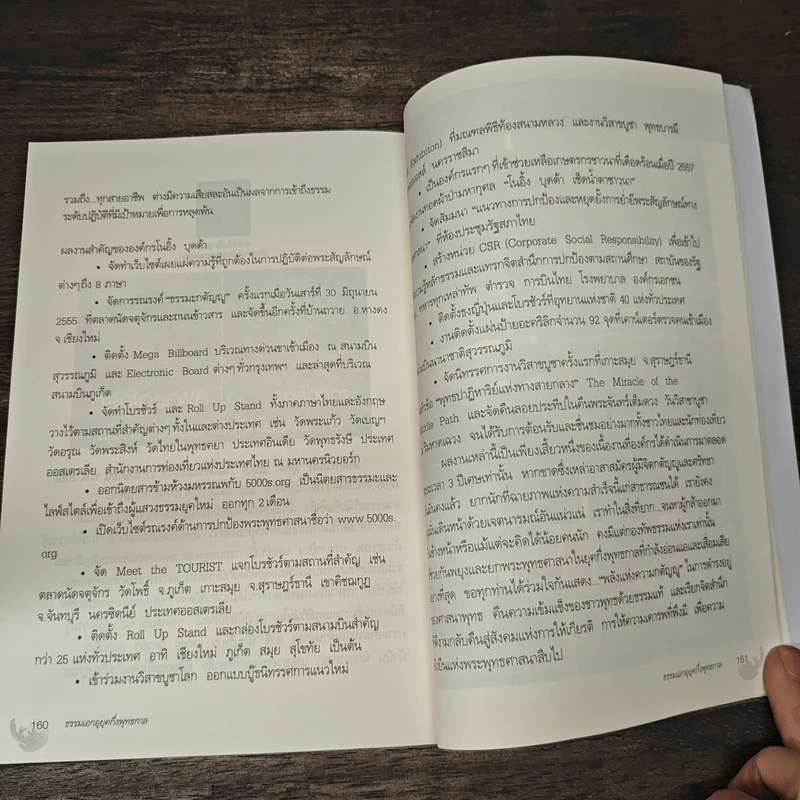 รวมถึง...ทุกสายอาชีพ ต่างมีความเสียสละอันเป็นผลจากการเข้าถึงธรรม
ระดับปฏิบัติที่มีเป้าหมายเพื่อการหลุดพ้น
ผลงานสำคัญขององค์กรโนอิ้ง บุดด้า
• จัดทำเว็บไซต์เผยแผ่ความรู้ที่ถูกต้องในการปฏิบัติต่อพระสัญลักษณ์
ต่างๆ ถึง 8 ภาษา
• จัดการรณรงค์ “ธรรมะกตัญญู” ครั้งแรกเมื่อวันเสาร์ที่ 30 มิถุนายน
2555 ที่ตลาดนัดจตุจักรและถนนข้าวสาร และจัดขึ้นอีกครั้งที่บ้านถวาย อ.หางดง
จ.เชียงใหม่
• ติดตั้ง Mega Billboard บริเวณทางด่วนขาเข้าเมือง ณ สนามบิน
สุวรรณภูมิ และ Electronic Board ต่างๆ ทั่วกรุงเทพฯ และล่าสุดที่บริเวณ
สนามบินภูเก็ต
• จัดทำโบรชัวร์ และ Roll Up Stand ทั้งภาคภาษาไทยและอังกฤษ
วางไว้ตามสถานที่สำคัญต่างๆ ทั้งในและต่างประเทศ เช่น วัดพระแก้ว วัดเบญฯ
วัดอรุณ วัดพระสิงห์ วัดไทยในพุทธคยา ประเทศอินเดีย วัดพุทธรังษี ประเทศ
ออสเตรเลีย สำนักงานการท่องเที่ยวแห่งประเทศไทย ณ มหานครนิวยอร์ก
• ออกนิตยสารข้ามห้วงมหรรณพกับ 5000s.org เป็นนิตยสารธรรมะและ
ไลฟ์สไตล์เพื่อเข้าถึงผู้แสวงธรรมยุคใหม่ ออกทุก 2 เดือน
• เปิดเว็บไซต์รณรงค์ด้านการปกป้องพระพุทธศาสนาชื่อว่า www.5000s.
org
• จัด Meet the TOURIST แจกโบรชัวร์ตามสถานที่สำคัญ เช่น
ตลาดนัดจตุจักร วัดโพธิ์ จ.ภูเก็ต เกาะสมุย จ.สุราษฎร์ธานี เขาคิชฌกูฏ
จ.จันทบุรี นครซิดนีย์ ประเทศออสเตรเลีย
• ติดตั้ง Roll Up Stand และกล่องโบรชัวร์ตามสนามบินสำคัญ
กว่า 25 แห่งทั่วประเทศ อาทิ เชียงใหม่ ภูเก็ต สมุย สุโขทัย เป็นต้น
• เข้าร่วมงานวิสาขบูชาโลก ออกแบบบู๊ธนิทรรศการแนวใหม่
160 ธรรมเอกอุยุคกึ่งพุทธกาล
Exhibiton) ที่มณฑลพิธีท้องสนามหลวง และงานวิสาขบูชา พุทธบารมี
นครราชสีมา
• เป็นองค์กรแรกๆ ที่เข้าช่วยเหลือเกษตรกรชาวนาที่เดือดร้อนเมื่อปี 2557
งานทอดผ้าป่ามหากุศล “โนอิ้ง บุดด้า เช็ดน้ำตาชาวนา”
• จัดสัมมนา “แนวทางการปกป้องและหยุดยั้งการย่ำยีพระสัญลักษณ์ทาง
ที่ห้องประชุมรัฐสภาไทย
• สร้างหน่วย CSR (Corporate Social Responsibility) เพื่อเข้าไป
ความรู้หลักธรรมและแทรกจิตสำนึกการปกป้องตามสถานศึกษา สถาบันของรัฐ
ทหารทุกเหล่าทัพ ตำรวจ การบินไทย โรงพยาบาล องค์กรเอกชน
• ติดตั้งธงญี่ปุ่นและโบรชัวร์ที่อุทยานแห่งชาติ 40 แห่งทั่วประเทศ
• งานติดตั้งแผ่นป้ายอะคริลิกจำนวน 92 จุดที่เคาน์เตอร์ตรวจคนเข้าเมือง
นานาชาติสุวรรณภูมิ
• จัดนิทรรศการงานวิสาขบูชาครั้งแรกที่เกาะสมุย จ.สุราษฎร์ธานี
“พุทธปาฏิหาริย์แห่งทางสายกลาง” The Miracle of the
Path และจัดคืนลอยประทีปในคืนพระจันทร์เต็มดวง วันวิสาขบูชา
จนได้รับการต้อนรับและชื่นชมอย่างมากทั้งชาวไทยและนักท่องเที่ยว
ผลงานเหล่านี้เป็นเพียงเสี้ยวหนึ่งของเนื้องานที่องค์กรได้ดำเนินการมาตลอด
ระยะเวลา 3 ปีเศษเท่านั้น หากขาดซึ่งเหล่าอาสาสมัครผู้มีจิตกตัญญูและศรัทธา
มั่นคงแล้ว ยากนักที่ฉายภาพแห่งความสำเร็จนี้แก่สาธารณชนได้ เรายังคง
เดินหน้าด้วยเจตนารมณ์อันแน่วแน่ เราทำในสิ่งที่ยาก...จนหาผู้กล้าออกมา
หน้าหรือแม้แต่จะคิดได้น้อยคนนัก คงมีแต่กองทัพธรรมแห่งเราเท่านั้น
ช่วยกันพยุงและยกพระพุทธศาสนาในยุคกึ่งพุทธกาลที่กำลังอ่อนแอและเสื่อมเสีย
ที่สุด ขอทุกท่านได้ร่วมใจกันแสดง...“พลังแห่งความกตัญญู” ในการดำรงอยู่
ศาสนาพุทธ คืนความเข้มแข็งของชาวพุทธด้วยธรรมแท้ และเรียกจิตสำนึก
กลับคืนสู่สังคมแห่งการให้เกียรติ การให้ความเคารพที่พึงมี เพื่อความ
ยืนแห่งพระพุทธศาสนาสืบไป
ธรรมเอกอุยุคกึ่งพุทธกาล 161